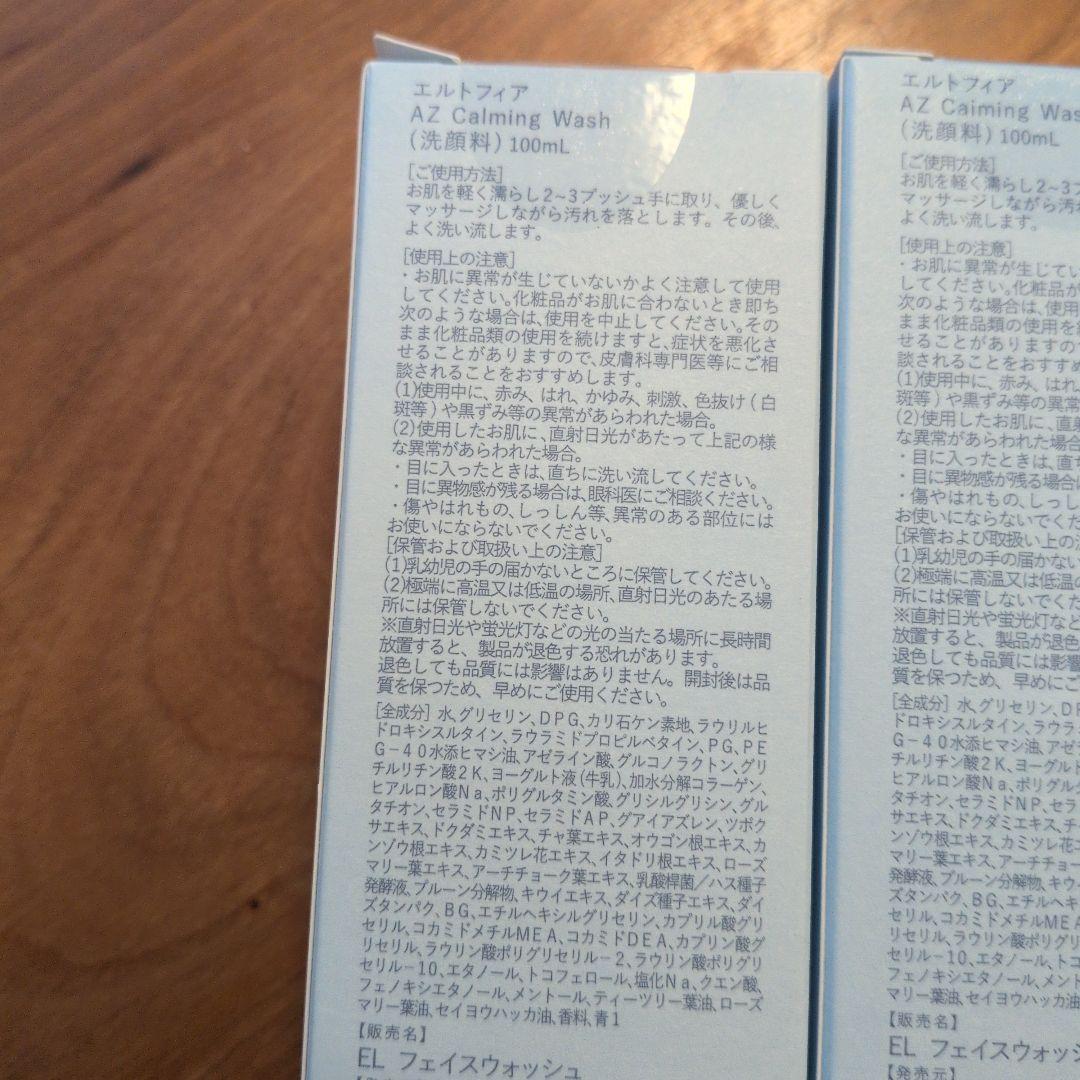 エルトフィア
AZ Calming Wash
(洗顔料) 100mL
[ご使用方法]
お肌を軽く濡らし2~3プッシュ手に取り、優しく
マッサージしながら汚れを落とします。その後、
よく洗い流します。
[使用上の注意]
・お肌に異常が生じていないかよく注意して使用
してください。化粧品がお肌に合わないとき即ち
次のような場合は、使用を中止してください。その
まま化粧品類の使用を続けますと、症状を悪化さ
せることがありますので、皮膚科専門医等にご相
談されることをおすすめします。
(1)使用中に、赤み、はれ、かゆみ、刺激、色抜け(白
斑等)や黒ずみ等の異常があらわれた場合。
(2)使用したお肌に、直射日光があたって上記の様
な異常があらわれた場合。
・目に入ったときは、直ちに洗い流してください。
・目に異物感が残る場合は、眼科医にご相談ください。
・傷やはれもの、しっしん等、異常のある部位には
お使いにならないでください。
[保管および取扱い上の注意]
(1)乳幼児の手の届かないところに保管してください。
(2)極端に高温又は低温の場所、直射日光のあたる場
所には保管しないでください。
※直射日光や蛍光灯などの光の当たる場所に長時間
放置すると、製品が退色する恐れがあります。
退色しても品質には影響はありません。開封後は品
質を保つため、早めにご使用ください。
[全成分] 水、グリセリン、DPG、カリ石ケン素地、ラウリルヒ
ドロキシスルタイン、ラウラミドプロピルベタイン、PG、PE
G-40水添ヒマシ油、アゼライン酸、グルコノラクトン、グリ
チルリチン酸2K、ヨーグルト液(牛乳)、加水分解コラーゲン、
ヒアルロン酸Na、ポリグルタミン酸、グリシルグリシン、グル
タチオン、セラミドNP、セラミドAP、グアイアズレン、ツボク
サエキス、ドクダミエキス、チャ葉エキス、オウゴン根エキス、カ
ンゾウ根エキス、カミツレ花エキス、イタドリ根エキス、ローズ
マリー葉エキス、アーチチョーク葉エキス、乳酸桿菌/ハス種子
発酵液、プルーン分解物、キウイエキス、ダイズ種子エキス、ダイ
ズタンパク、BG、エチルヘキシルグリセリン、カプリル酸グリ
セリル、コカミドメチルMEA、コカミドDEA、カプリン酸グ
リセリル、ラウリン酸ポリグリセリル-2、ラウリン酸ポリグリ
セリル-10、エタノール、トコフェロール、塩化Na、クエン酸、
フェノキシエタノール、メントール、ティーツリー葉油、ローズ
マリー葉油、セイヨウハッカ油、香料、青1
【販売名】
EL フェイスウォッシュ
エルトフィア
AZ Caiming Was
(洗顔料) 100mL
[ご使用方法]
お肌を軽く濡らし2~3プ
マッサージしながら汚れ
よく洗い流します。
[使用上の注意]
・お肌に異常が生じてい
してください。化粧品が
次のような場合は、使用
まま化粧品類の使用を
せることがありますの
談されることをおすすめ
(1)使用中に、赤み、はれ
斑等)や黒ずみ等の異常
(2)使用したお肌に、直射
な異常があらわれた場合
・目に入ったときは、直ち
・目に異物感が残る場合
・傷やはれもの、しっし
お使いにならないでくだ
[保管および取扱い上の
(1)乳幼児の手の届かない
(2)極端に高温又は低温
所には保管しないでくだ
※直射日光や蛍光灯など
放置すると、製品が退色
退色しても品質には影響
質を保つため、早めにご
[全成分] 水、グリセリン、DP
ドロキシスルタイン、ラウラ
G-40水添ヒマシ油、アゼ
チルリチン酸2K、ヨーグル
ヒアルロン酸Na、ポリグル
タチオン、セラミドNP、セラ
サエキス、ドクダミエキス、チ
ンゾウ根エキス、カミツレ花
マリー葉エキス、アーチチョー
発酵液、プルーン分解物、キウ
ズタンパク、BG、エチルヘキ
セリル、コカミドメチルME
リセリル、ラウリン酸ポリグリ
セリル-10、エタノール、トコ
フェノキシエタノール、メント
マリー葉油、セイヨウハッカ油
【販売名】
EL フェイスウォッシ
【発売元】